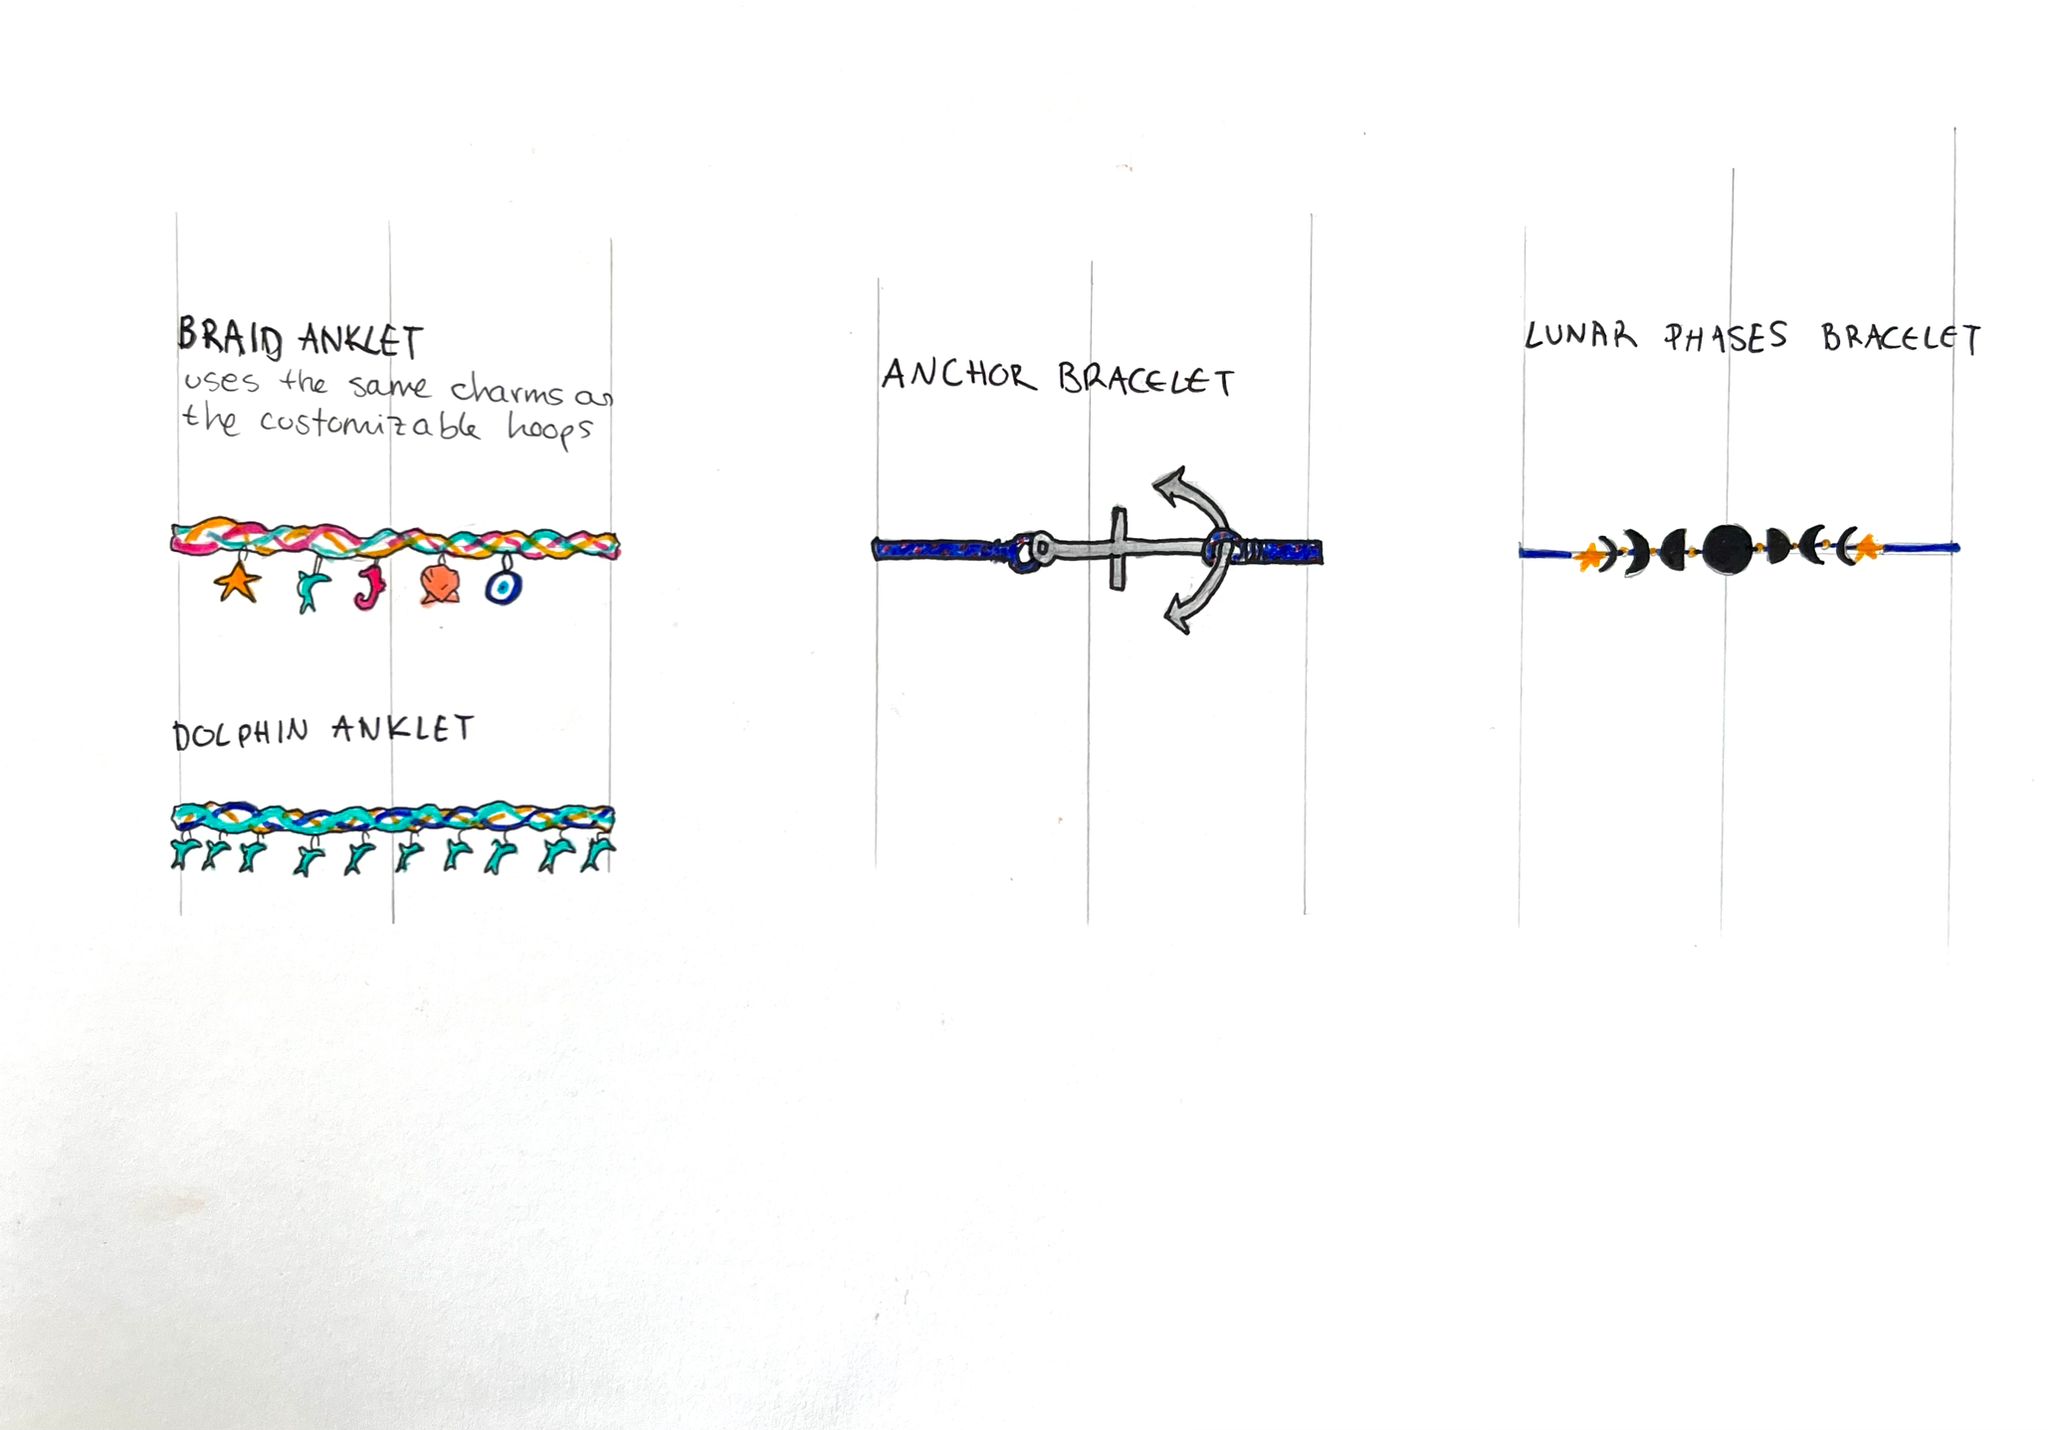 BRAID ANKLET
uses the same charms as
the customizable hoops
DOLPHIN ANKLET
ANCHOR BRACELET
LUNAR PHASES BRACELET